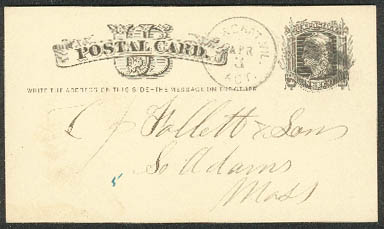 U S
POSTAL CARD.
APR
3
WRITE THE ADDRESS ON THIS SIDE-THE MESSAGE ON THE OTHER
C J Follett & Sons
So Adams
Mass
5